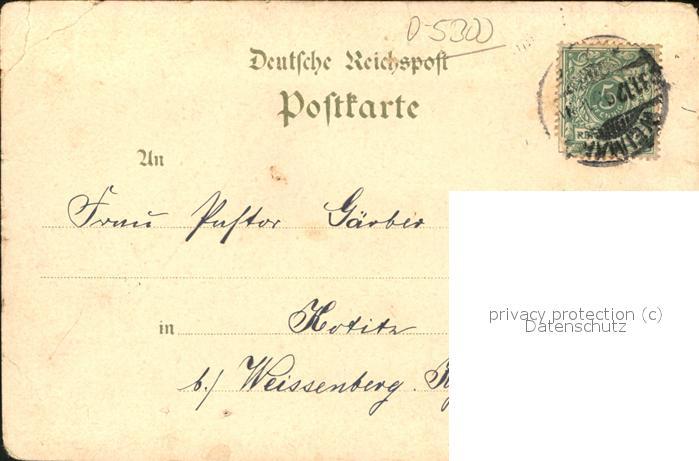 D-5300
Deutsche Reichspost
Postkarte
5
WEIMAR
An
Frau Pastor Gärber
in Kotitz
b./ Weissenberg.
privacy protection (c)
Datenschutz